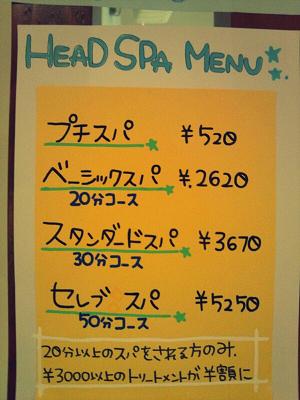 HEAD SPA MENU
プチスパ ¥520
ベーシックスパ ¥.2620
20分コース
スタンダードスパ ¥3670
30分コース
セレブスパ ¥5250
50分コース
20分以上のスパをされる方のみ.
¥3000以上のトリートメントが半額に